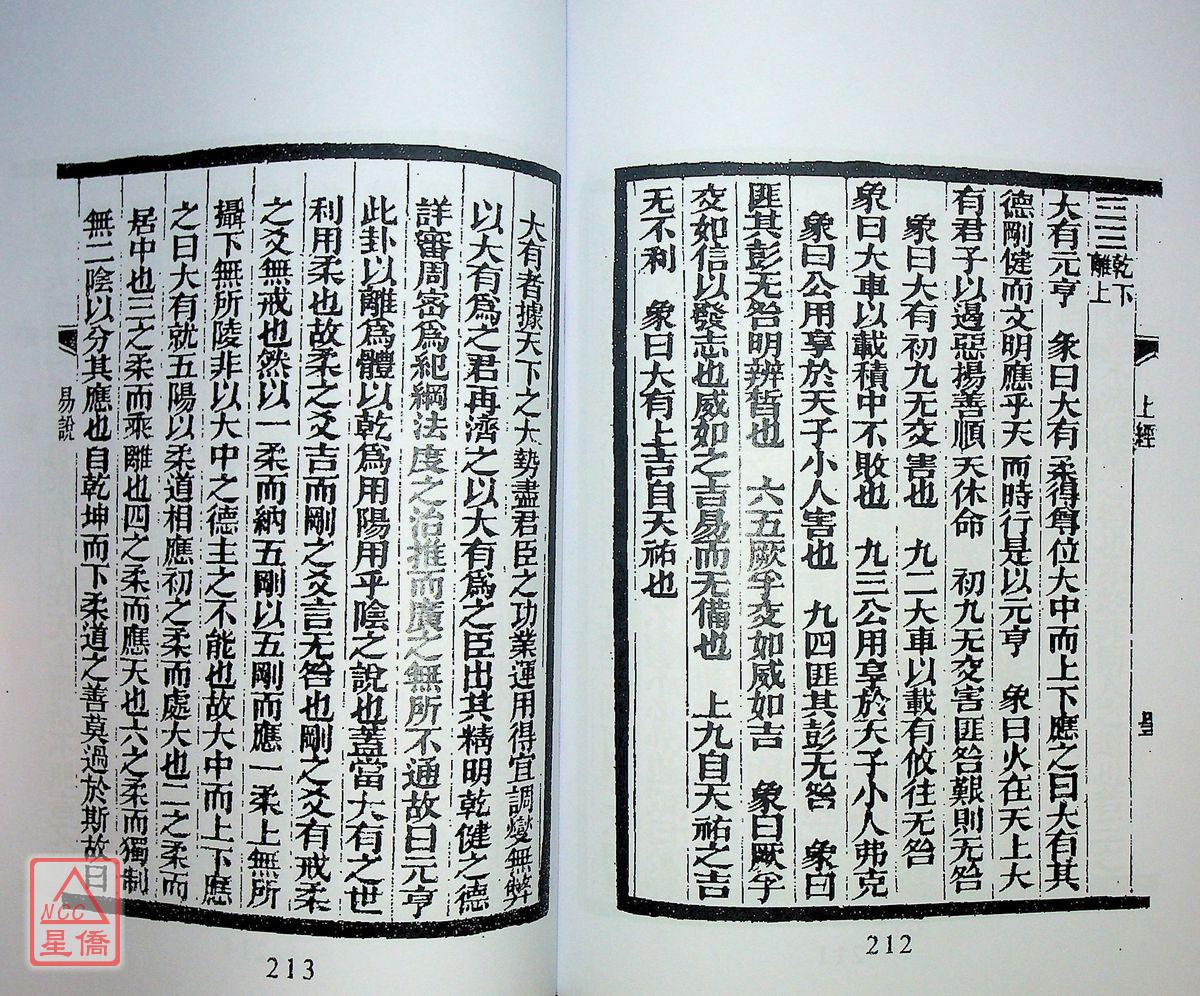 乾下
離上
大有元亨 彖曰大有柔得尊位大中而上下應之曰大有其
德剛健而文明應乎天而時行是以元亨 象曰火在天上大
有君子以遏惡揚善順天休命 初九无交害匪咎艱則无咎
象曰大有初九无交害也 九二大車以載有攸往无咎
象曰大車以載積中不敗也 九三公用享於天子小人弗克
象曰公用享於天子小人害也 九四匪其彭无咎 象曰
匪其彭无咎明辨晢也 六五厥孚交如威如吉 象曰厥孚
交如信以發志也威如之吉易而无備也 上九自天祐之吉
无不利 象曰大有上吉自天祐也
上經
212
大有者據天下之大勢盡君臣之功業運用得宜調燮無弊
以大有為之君再濟之以大有為之臣出其精明乾健之德
詳審周密為紀綱法度之治推而廣之無所不通故曰元亨
此卦以離為體以乾為用陽用乎陰之說也蓋當大有之世
利用柔也故柔之爻吉而剛之爻言无咎也剛之爻有戒柔
之爻無戒也然以一柔而納五剛以五剛而應一柔上無所
攝下無所陵非以大中之德主之不能也故大中而上下應
之曰大有就五陽以柔道相應初之柔而處大也二之柔而
居中也三之柔而乘離也四之柔而應天也六之柔而獨制
無二陰以分其應也自乾坤而下柔道之善莫過於斯故曰
易說
213
NCC
星僑